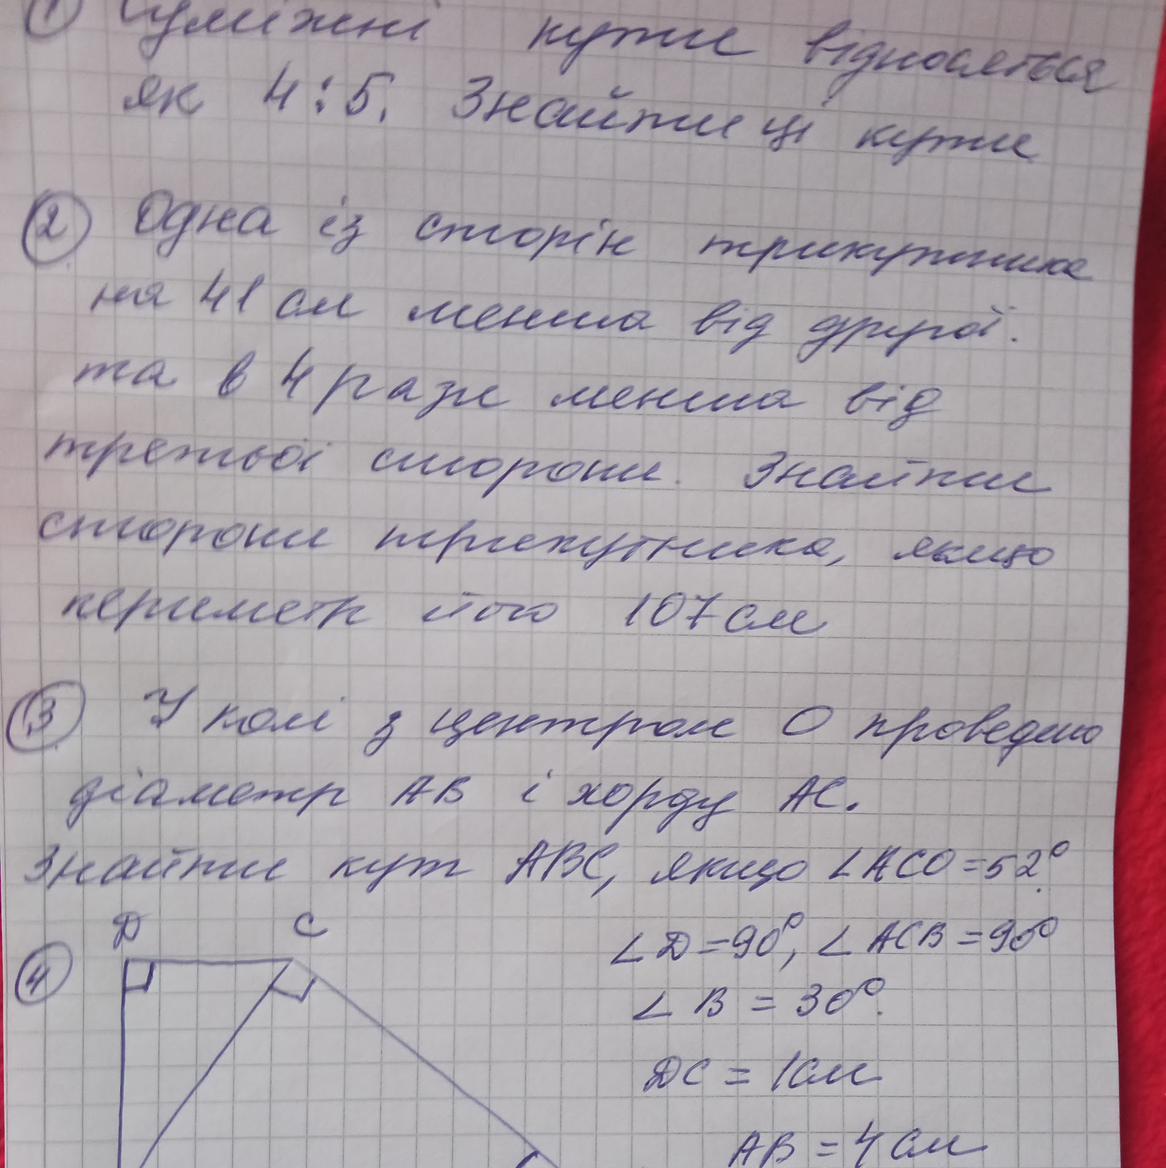 1 Суміжні кути відносяться
як 4:5. Знайти ці кути
2 Одна із сторін трикутника
на 41 см менша від другої.
та в 4 рази менша від
третьої сторони. Знайти
сторони трикутника, якщо
периметр його 107 см
3 У колі з центром О проведено
діаметр АВ і хорду АС.
Знайти кут АВС, якщо ∠АСО = 52°.
D C
4
∠D = 90°, ∠ACB = 90°
∠B = 30°.
DC = 1 см
AB = 4 см